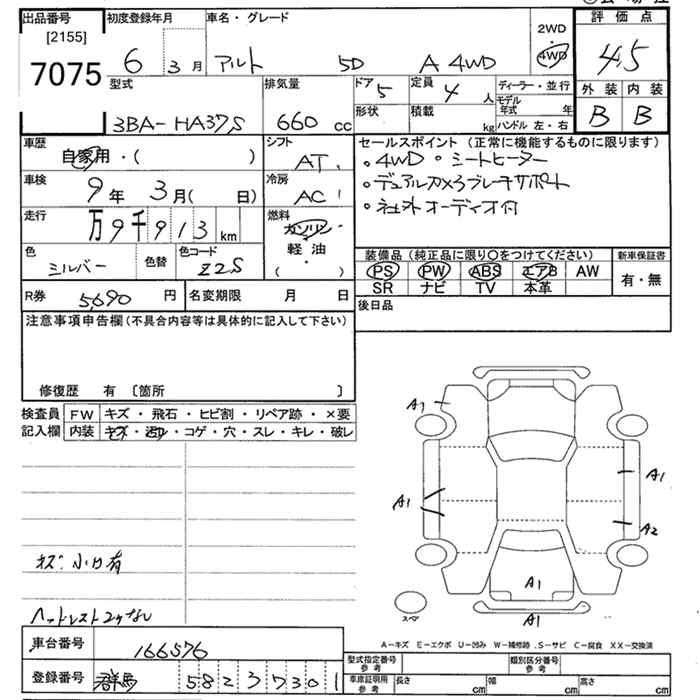 出品番号 初度登録年月 車名・グレード 評価点
[2155] 2WD
7075 6 3月 アルト 5D A 4WD ・ 4WD 4.5
型式 排気量 ドア 5 定員 4 人 ディーラー・並行 外装 内装
形状 積載 kg モデル年式 年 B B
3BA-HA37S 660 cc ハンドル 左・右
車歴 シフト セールスポイント (正常に機能するものに限ります)
自家用・( ) AT 。4WD 。シートヒーター
車検 9年 3月( 日) 冷房 AC 。デュアルカメラブレーキサポート
走行 万9千913 km 燃料 ガソリン 。社外オーディオ付
色 シルバー 色替 色コード Z2S 軽油 ・ ( )
装備品 (純正品に限り〇をつけてください) 新車保証書
PS PW ABS エアB AW 有・無
SR ナビ TV 本革
R券 5,690 円 名変期限 月 日 後日品
注意事項申告欄 (不具合内容等は具体的に記入して下さい)
修復歴 有 〔箇所 〕
検査員 FW キズ・飛石・ヒビ割・リペア跡・×要
記入欄 内装 キズ・汚れ・コゲ・穴・スレ・キレ・破レ
A1
A1
A1
A2
キズ小凹有
A1
スペア
A1
ヘッドレスト2ケなし
A-キズ E-エクボ U-凹み W-補修跡 S-サビ C-腐食 XX-交換済
車台番号 166576
型式指定番号 参考 類別区分番号 参考
登録番号 群馬 582 37301
車庫証明用 参考 長さ cm 幅 cm 高さ cm